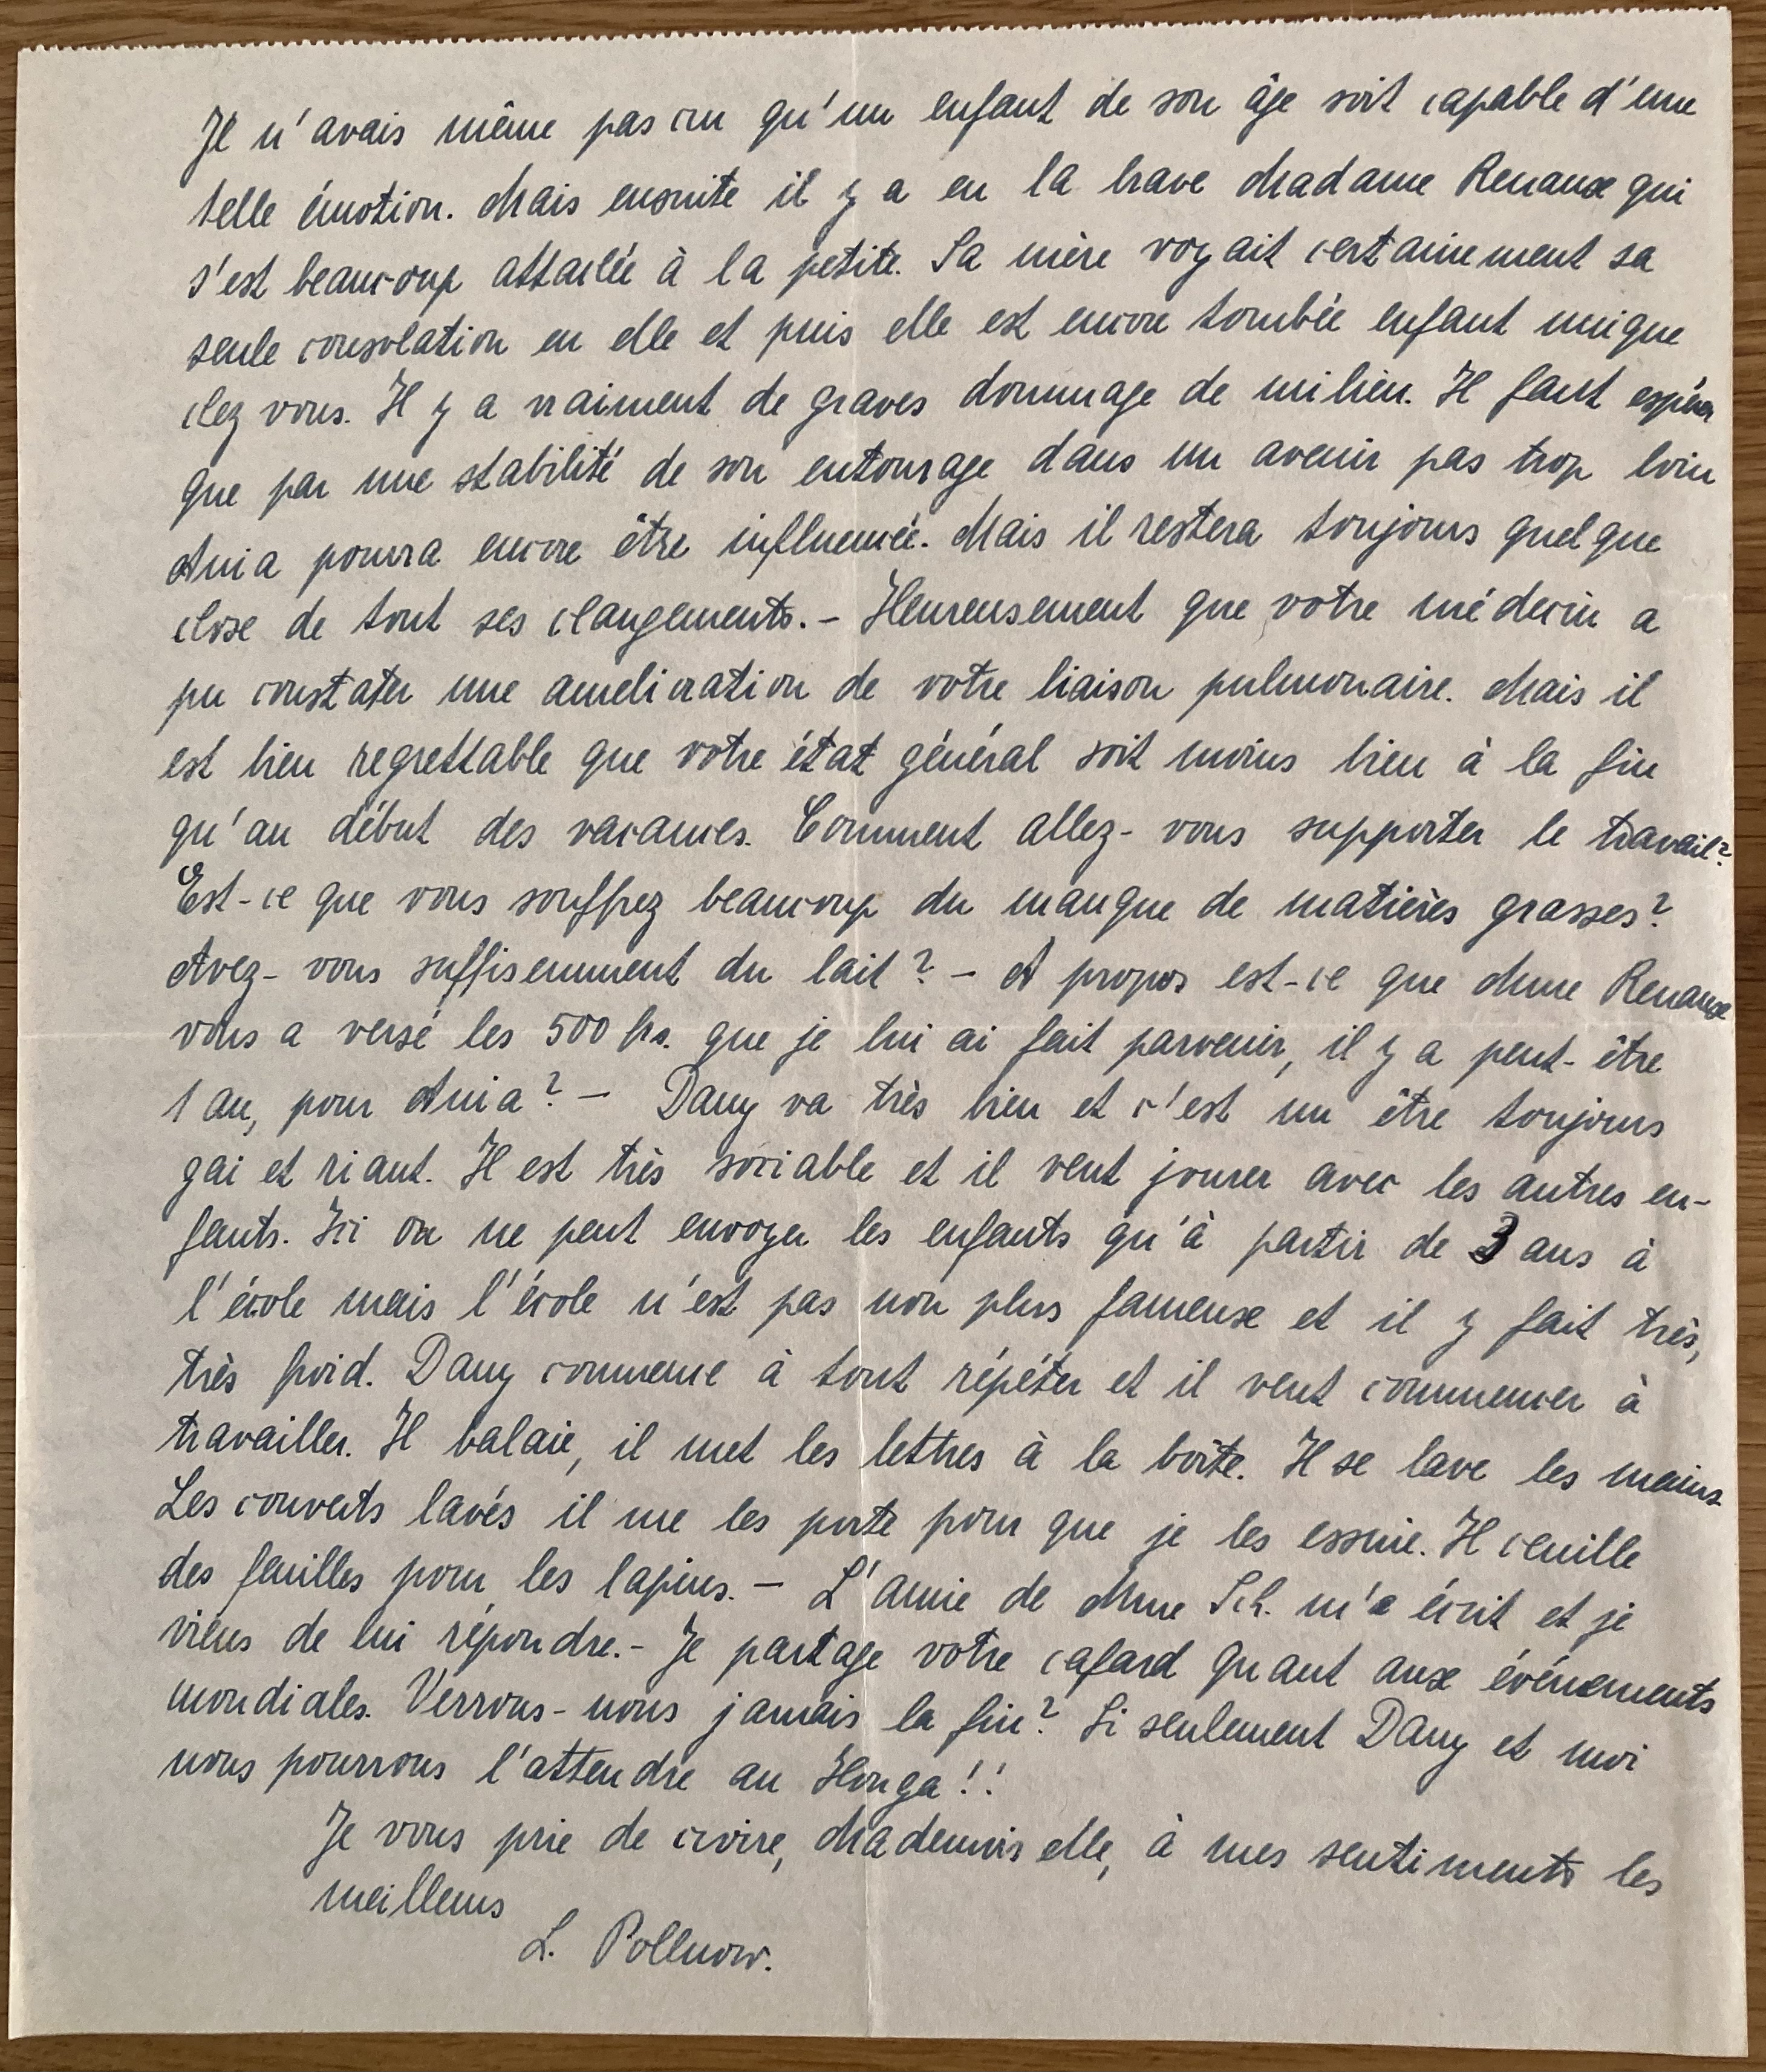 Je n'avais même pas cru qu'un enfant de son âge soit capable d'une
telle émotion. Mais ensuite il y a eu la brave Madame Renaux qui
s'est beaucoup attachée à la petite. Sa mère voyait certainement sa
seule consolation en elle et puis elle est encore tombée enfant unique
chez vous. Il y a vraiment de graves dommage de milieu. Il faut espérer
que par une stabilité de son entourage dans un avenir pas trop loin
Ania pourra encore être influencée. Mais il restera toujours quelque
chose de tout ses changements. - Heureusement que votre médecin a
pu constater une amelioration de votre liaison pulmonaire. Mais il
est bien regrettable que votre état général soit moins bien à la fin
qu'au début des vacances. Comment allez-vous supporter le travail?
Est-ce que vous souffrez beaucoup du manque de matières grasses?
Avez-vous suffisemment du lait? - A propos est-ce que Mme Renaux
vous a versé les 500 frs. que je lui ai fait parvenir, il y a peut-être
1 an, pour Ania? - Dany va très bien et c'est un être toujours
gai et riant. Il est très sociable et il veut jouer avec les autres en-
fants. Ici on ne peut envoyer les enfants qu'à partir de 3 ans à
l'école mais l'école n'est pas non plus fameuse et il y fait très,
très froid. Dany commence à tout répéter et il veut commencer à
travailler. Il balaie, il met les lettres à la boîte. Il se lave les mains.
Les couverts lavés il me les porte pour que je les essuie. Il ceuille
des feuilles pour les lapins. - L'amie de Mme Sch. m'a écrit et je
viens de lui répondre. - Je partage votre cafard quant aux événements
mondiales. Verrons-nous jamais la fin? Si seulement Dany et moi
nous pourrons l'attendre au Houga!!
Je vous prie de croire, Mademoiselle, à mes sentiments les
meilleurs
L. Pollnow.